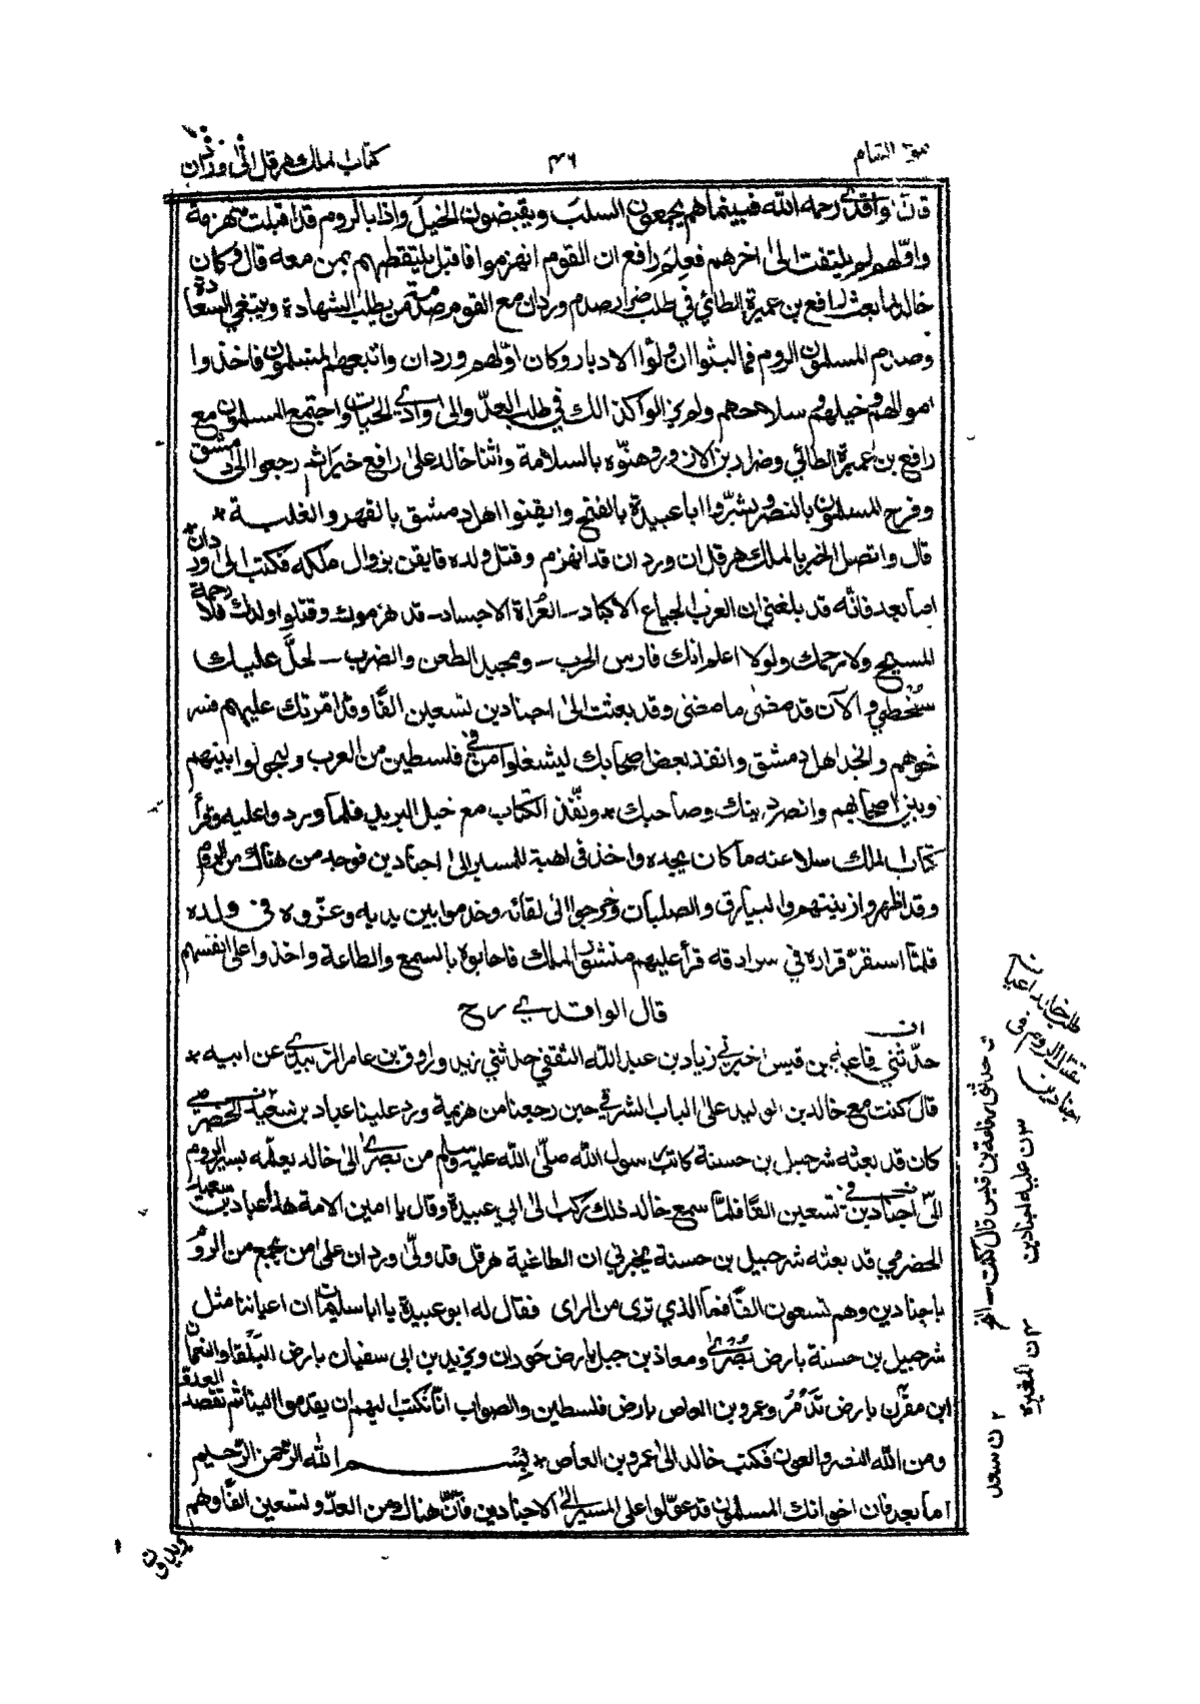 فتوح الشام
٤٦
كتاب الملك هرقل الى وردان
قال الواقدي رحمه الله فبينما هم يجمعون السلب ويقبضون الخيل واذا بالروم قد اقبلت منهزمة
واولهم لم يلتفت الى اخرهم فعلم رافع ان القوم انهزموا فاقبل يلتقطهم بمن معه قال وكان
خالد لما بعث لرافع بن عميرة الطائي في طلب ضرار صدم وردان مع القوم صدمة من يطلب الشهادة ويبتغي السعادة
وصدم المسلمون الروم فما لبثوا ان ولوا الادبار وكان اولهم وردان واتبعهم المسلمون فاخذوا
اموالهم وخيلهم وسلاحهم ولم يزالوا كذلك في طلب العدو الى وادي الحيات واجتمع المسلمون مع
رافع بن عميرة الطائي وضرار بن الازور وهنوه بالسلامة واثنا خالد على رافع خيرا ثم رجعوا الى دمشق
وفرح المسلمون بالنصر وبشروا ابا عبيدة بالفتح وايقنوا اهل دمشق بالقهر والغلبة *
قال واتصل الخبر بالملك هرقل ان وردان قد انهزم وقتل ولده فايقن بزوال ملكه فكتب الى وردان *
اما بعد فانه قد بلغني ان العرب الجياع الاكباد – العراة الاجساد – قد هزموك وقتلوا ولدك فلا رحمة
المسيح ولا رحمك ولولا اعلم انك فارس الحرب – ومجيد الطعن والضرب – لحل عليك
سخطي والآن قد مضى ما مضى وقد بعثت الى اجنادين تسعين الفا وقد امرتك عليهم فسر
نحوهم وانجد اهل دمشق وانفذ بعض اصحابك ليشغلوا من في فلسطين من العرب ويحولوا بينهم
وبين اصحابهم وانصر دينك وصاحبك * ونفذ الكتاب مع خيل البريد فلما ورد واعليه وقرأ
كتاب الملك سلا عنه ما كان يجده واخذ في اهبة المسير الى اجنادين فوجد من هناك من الروم
وقد اظهروا زينتهم والبيارق والصلبان وخرجوا الى لقائه وخدموا بين يديه وعزوه في ولده
فلما استقر قراره في سرادقه قرأ عليهم منشور الملك فاجابوه بالسمع والطاعة واخذوا على انفسهم
قال الواقدي رح
حدثني قاعد بن قيس اخبرني زياد بن عبد الله الثقفي حدثني زيد واروق بن عامر الزبيدي عن ابيه *
قال كنت مع خالد بن الوليد على الباب الشرقي حين رجعنا من هزيمة ورد علينا عباد بن سعيد الحضرمي
كان قد بعثه شرحبيل بن حسنة كاتب رسول الله صلى الله عليه وسلم من بصرى الى خالد يعلمه بسير الروم
الى اجنادين في تسعين الفا فلما سمع خالد ذلك ركب الى ابي عبيدة وقال يا امين الامة هذا عباد بن سعيد
الحضرمي قد بعثه شرحبيل بن حسنة يخبرني ان الطاغية هرقل قد ولى وردان على من يجمع من الروم
باجنادين وهم تسعون الفا فما الذي ترى من الراى فقال له ابو عبيدة يا ابا سليمان ان اعياننا مثل
شرحبيل بن حسنة بارض بصرى ومعاذ بن جبل بارض حوران ويزيد بن ابى سفيان بارض البلقا والنعمان
ابن مقرن بارض تدمر وعمرو بن العاص بارض فلسطين والصواب انا نكتب اليهم ان يقدموا الينا ثم نقصد العدو
ومن الله النصر والعون فكتب خالد الى عمرو بن العاص * بسم الله الرحمن الرحيم
اما بعد فان اخوانك المسلمون قد عولوا على المسير الى الاجنادين فان هناك من العدو تسعين الفا وهم
يريدون
ن حدثني رفاعة بن قيس قال كنت الخ
٣ ن عليه اجنادين
٤ ن المغيره
٢ ن سعد